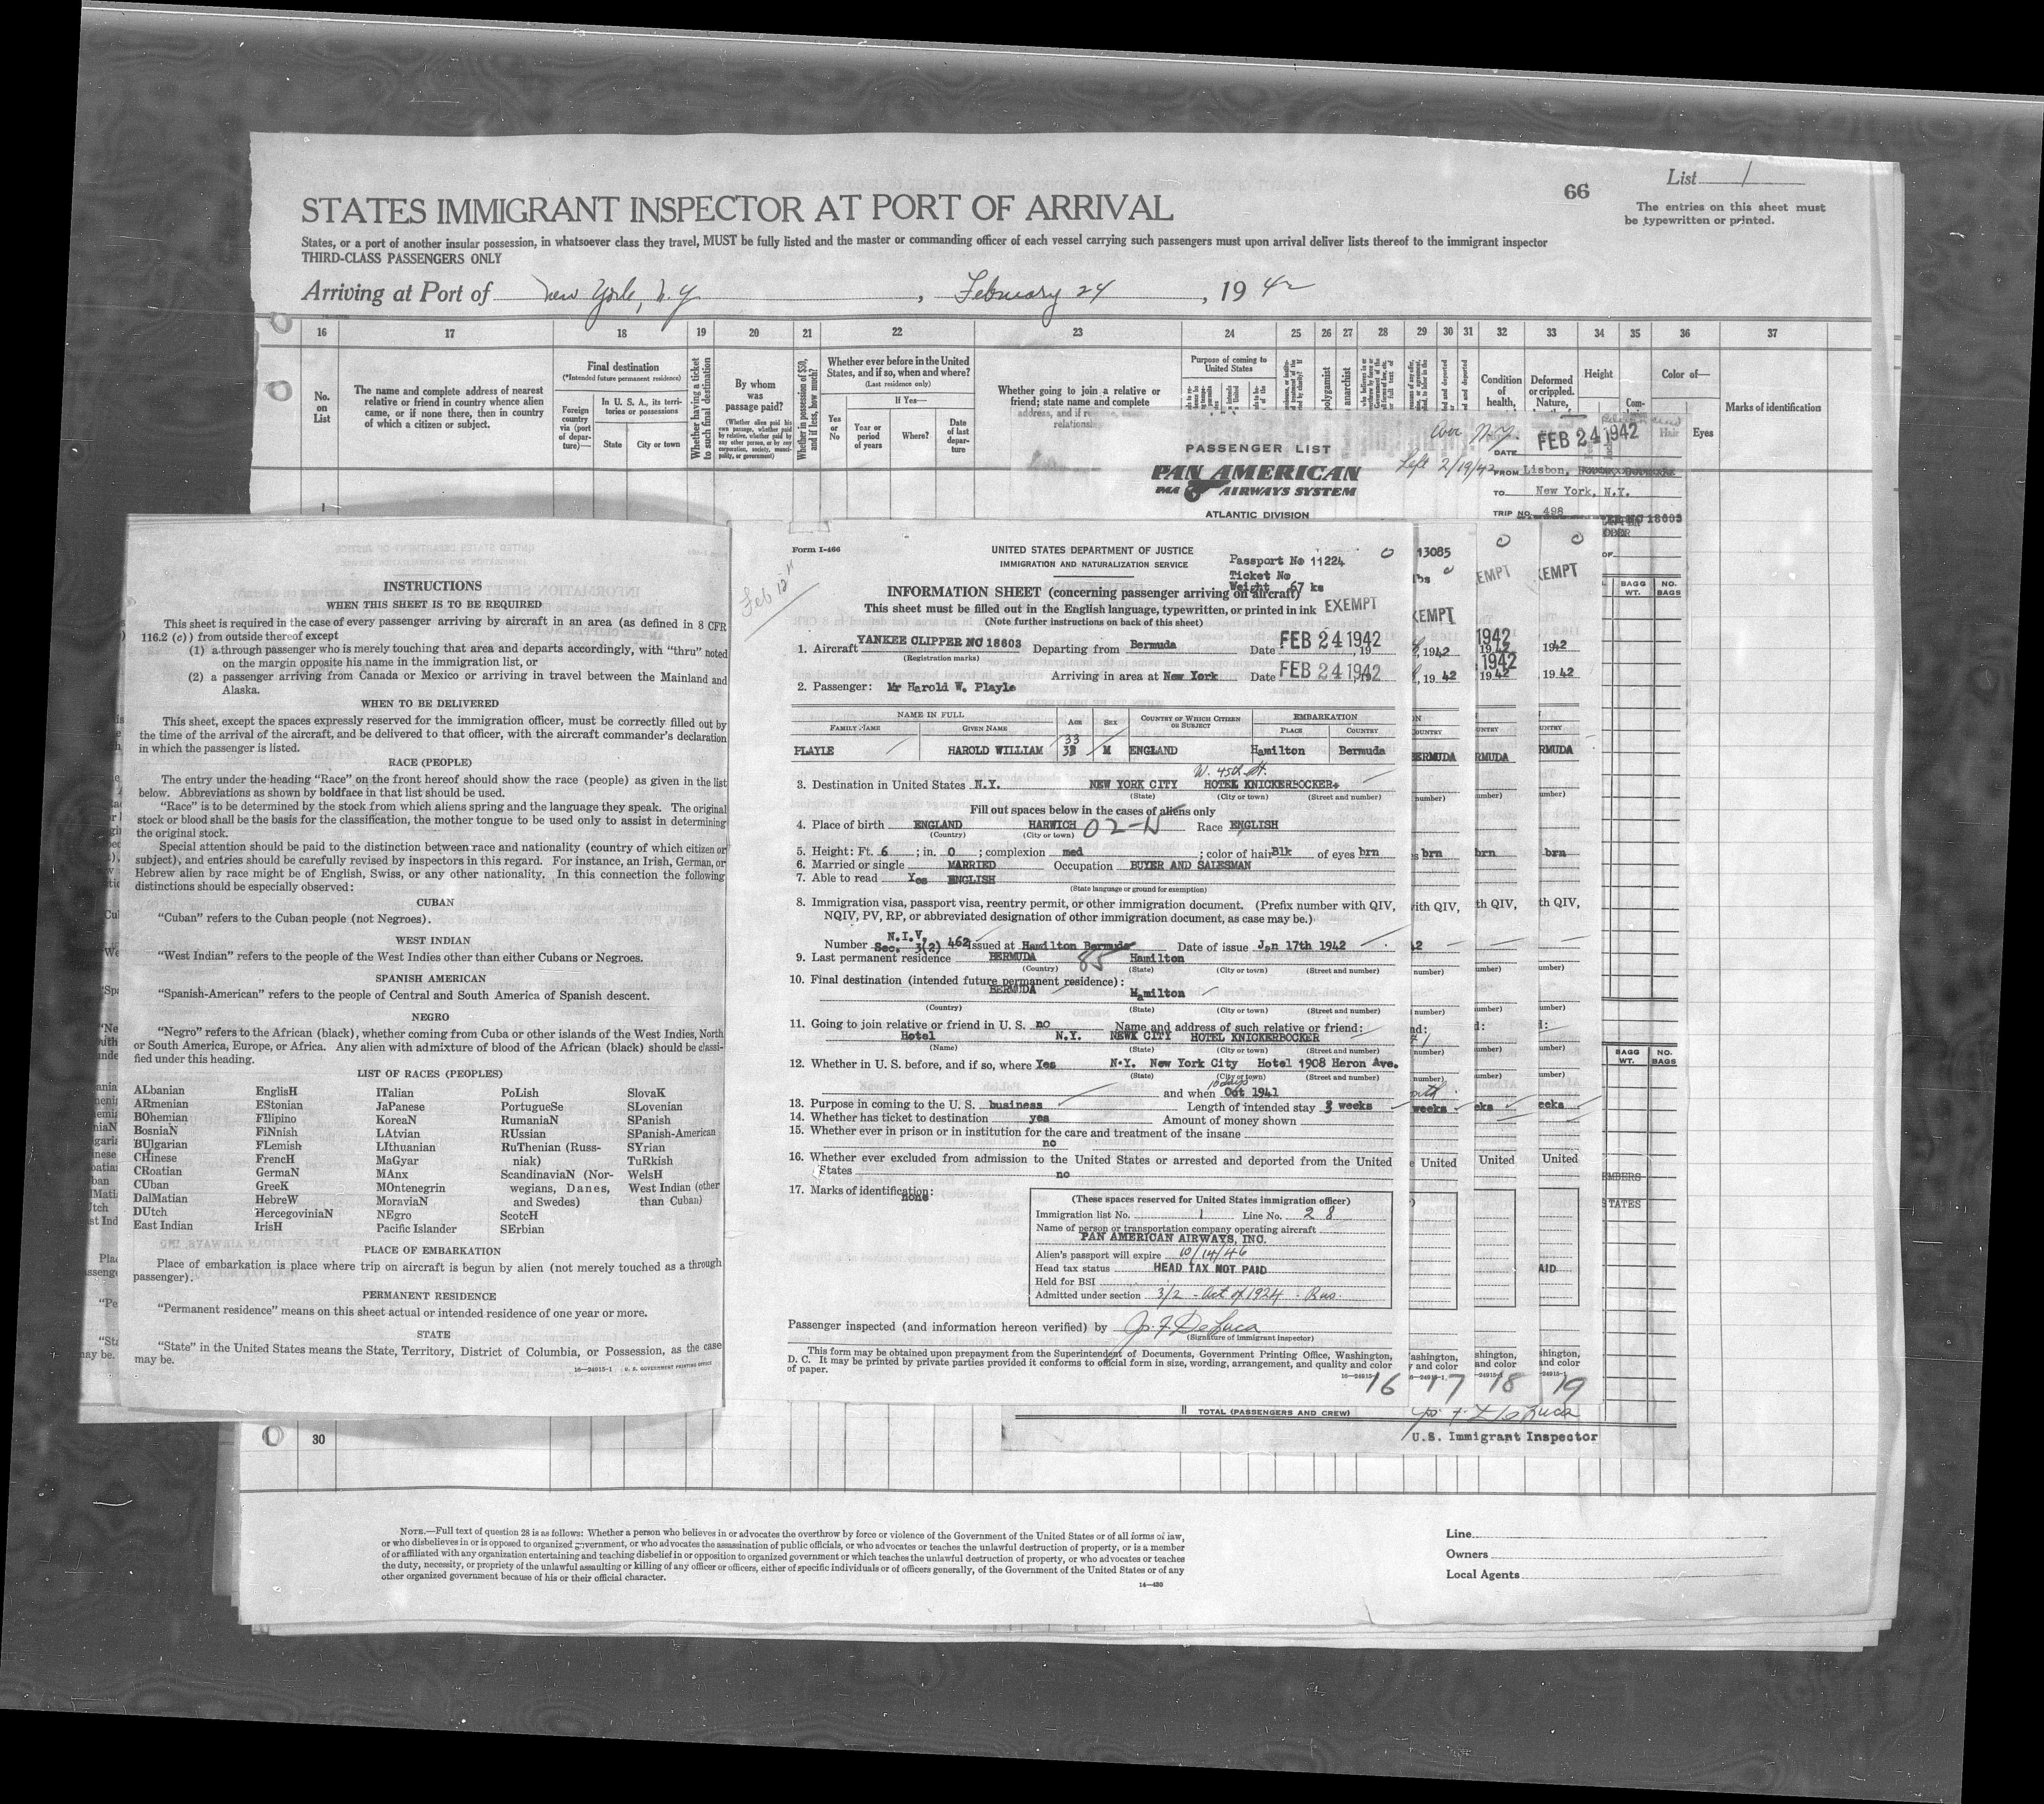 66
List 1
STATES IMMIGRANT INSPECTOR AT PORT OF ARRIVAL
The entries on this sheet must
be typewritten or printed.
States, or a port of another insular possession, in whatsoever class they travel, MUST be fully listed and the master or commanding officer of each vessel carrying such passengers must upon arrival deliver lists thereof to the immigrant inspector
THIRD-CLASS PASSENGERS ONLY
Arriving at Port of New York, N.Y , February 24 , 19 42
16 17 18 19 20 21 22 23 24 25 26 27 28 29 30 31 32 33 34 35 36 37
No. on List
The name and complete address of nearest
relative or friend in country whence alien
came, or if none there, then in country
of which a citizen or subject.
Final destination
(*Intended future permanent residence)
Foreign country via (port of departure)—
In U. S. A., its territories or possessions
State
City or town
Whether having a ticket to such final destination
By whom was passage paid?
(Whether alien paid his own passage, whether paid by relative, whether paid by any other person, or by any corporation, society, municipality, or government)
Whether in possession of $50, and if less, how much?
Whether ever before in the United
States, and if so, when and where?
(Last residence only)
If Yes—
Yes or No
Year or period of years
Where?
Date of last departure
Whether going to join a relative or
friend; state name and complete
address, and if
Purpose of coming to
United States
polygamist
anarchist
Condition of health,
Deformed or crippled. Nature,
Height
Color of—
Hair
Eyes
Marks of identification
PASSENGER LIST
PAN AMERICAN
AIRWAYS SYSTEM
ATLANTIC DIVISION
Left 2/19/42
DATE FEB 24 1942
FROM Lisbon,
TO New York, N.Y.
TRIP NO. 498
BAGG WT.
NO. BAGS
INSTRUCTIONS
WHEN THIS SHEET IS TO BE REQUIRED
This sheet is required in the case of every passenger arriving by aircraft in an area (as defined in 8 CFR
116.2 (c)) from outside thereof except
(1) a through passenger who is merely touching that area and departs accordingly, with "thru" noted
on the margin opposite his name in the immigration list, or
(2) a passenger arriving from Canada or Mexico or arriving in travel between the Mainland and
Alaska.
WHEN TO BE DELIVERED
This sheet, except the spaces expressly reserved for the immigration officer, must be correctly filled out by
the time of the arrival of the aircraft, and be delivered to that officer, with the aircraft commander's declaration
in which the passenger is listed.
RACE (PEOPLE)
The entry under the heading "Race" on the front hereof should show the race (people) as given in the list
below. Abbreviations as shown by boldface in that list should be used.
"Race" is to be determined by the stock from which aliens spring and the language they speak. The original
stock or blood shall be the basis for the classification, the mother tongue to be used only to assist in determining
the original stock.
Special attention should be paid to the distinction between race and nationality (country of which citizen or
subject), and entries should be carefully revised by inspectors in this regard. For instance, an Irish, German, or
Hebrew alien by race might be of English, Swiss, or any other nationality. In this connection the following
distinctions should be especially observed:
CUBAN
"Cuban" refers to the Cuban people (not Negroes).
WEST INDIAN
"West Indian" refers to the people of the West Indies other than either Cubans or Negroes.
SPANISH AMERICAN
"Spanish-American" refers to the people of Central and South America of Spanish descent.
NEGRO
"Negro" refers to the African (black), whether coming from Cuba or other islands of the West Indies, North
or South America, Europe, or Africa. Any alien with admixture of blood of the African (black) should be classi-
fied under this heading.
LIST OF RACES (PEOPLES)
ALbanian EnglisH ITalian PoLish SlovaK
ARmenian EStonian JaPanese PortugueSe SLovenian
BOhemian FIlipino KoreaN RumaniaN SPanish
BosniaN FiNnish LAtvian RUssian SPanish-American
BUlgarian FLemish LIthuanian RuThenian (Russ- SYrian
CHinese FrencH MaGyar niak) TuRkish
CRoatian GermaN MAnx ScandinaviaN (Nor- WelsH
CUban GreeK MOntenegrin wegians, Danes, West Indian (other
DalMatian HebreW MoraviaN and Swedes) than Cuban)
DUtch HercegoviniaN NEgro ScotcH
East Indian IrisH Pacific Islander SErbian
PLACE OF EMBARKATION
Place of embarkation is place where trip on aircraft is begun by alien (not merely touched as a through
passenger).
PERMANENT RESIDENCE
"Permanent residence" means on this sheet actual or intended residence of one year or more.
STATE
"State" in the United States means the State, Territory, District of Columbia, or Possession, as the case
may be.
16—24915-1 U. S. GOVERNMENT PRINTING OFFICE
Feb 12
Form I-466
UNITED STATES DEPARTMENT OF JUSTICE
IMMIGRATION AND NATURALIZATION SERVICE
Passport No 11224
Ticket No
Weight 67 ks
INFORMATION SHEET (concerning passenger arriving on aircraft)
This sheet must be filled out in the English language, typewritten, or printed in ink EXEMPT
(Note further instructions on back of this sheet)
1. Aircraft YANKEE CLIPPER NC 18603 Departing from Bermuda Date FEB 24 1942
(Registration marks)
Arriving in area at New York Date FEB 24 1942
2. Passenger: Mr Harold W. Playle
NAME IN FULL AGE SEX COUNTRY OF WHICH CITIZEN OR SUBJECT EMBARKATION
FAMILY NAME GIVEN NAME PLACE COUNTRY
33
PLAYLE HAROLD WILLIAM M ENGLAND Hamilton Bermuda
W. 45th St.
3. Destination in United States N.Y. NEW YORK CITY HOTEL KNICKERBOCKER
(State) (City or town) (Street and number)
Fill out spaces below in the cases of aliens only
4. Place of birth ENGLAND HARWICH 02-N Race ENGLISH
(Country) (City or town)
5. Height: Ft. 6 ; in. 0 ; complexion med ; color of hair Blk of eyes brn
6. Married or single MARRIED Occupation BUYER AND SALESMAN
7. Able to read Yes ENGLISH
(State language or ground for exemption)
8. Immigration visa, passport visa, reentry permit, or other immigration document. (Prefix number with QIV,
NQIV, PV, RP, or abbreviated designation of other immigration document, as case may be.)
N.I.V.
Number Sec. 3(2) 462 Issued at Hamilton Bermuda Date of issue Jan 17th 1942
9. Last permanent residence BERMUDA 85 Hamilton
(Country) (State) (City or town) (Street and number)
10. Final destination (intended future permanent residence):
BERMUDA Hamilton
(Country) (State) (City or town) (Street and number)
11. Going to join relative or friend in U. S. no Name and address of such relative or friend:
Hotel N.Y. NEWK CITY HOTEL KNICKERBOCKER
(Name) (State) (City or town) (Street and number)
12. Whether in U. S. before, and if so, where Yes N.Y. New York City Hotel 1908 Heron Ave.
(State) (City or town) (Street and number)
10 days
and when Oct 1941
13. Purpose in coming to the U. S. business Length of intended stay 3 weeks
14. Whether has ticket to destination yes Amount of money shown
15. Whether ever in prison or in institution for the care and treatment of the insane
no
16. Whether ever excluded from admission to the United States or arrested and deported from the United
States no
17. Marks of identification:
none
(These spaces reserved for United States immigration officer)
Immigration list No. 1 Line No. 28
Name of person or transportation company operating aircraft
PAN AMERICAN AIRWAYS, INC.
Alien's passport will expire 10/14/46
Head tax status HEAD TAX NOT PAID
Held for BSI
Admitted under section 3/2 - Act of 1924 - Bus.
Passenger inspected (and information hereon verified) by Jos. F. DeLuca
(Signature of immigrant inspector)
This form may be obtained upon prepayment from the Superintendent of Documents, Government Printing Office, Washington,
D. C. It may be printed by private parties provided it conforms to official form in size, wording, arrangement, and quality and color
of paper.
16—24915-1
16 17 18 19
TOTAL (PASSENGERS AND CREW)
Jos. F. DeLuca
U.S. Immigrant Inspector
30
NOTE.—Full text of question 28 is as follows: Whether a person who believes in or advocates the overthrow by force or violence of the Government of the United States or of all forms of law,
or who disbelieves in or is opposed to organized government, or who advocates the assassination of public officials, or who advocates or teaches the unlawful destruction of property, or is a member
of or affiliated with any organization entertaining and teaching disbelief in or opposition to organized government or which teaches the unlawful destruction of property, or who advocates or teaches
the duty, necessity, or propriety of the unlawful assaulting or killing of any officer or officers, either of specific individuals or of officers generally, of the Government of the United States or of any
other organized government because of his or their official character.
14—430
Line
Owners
Local Agents